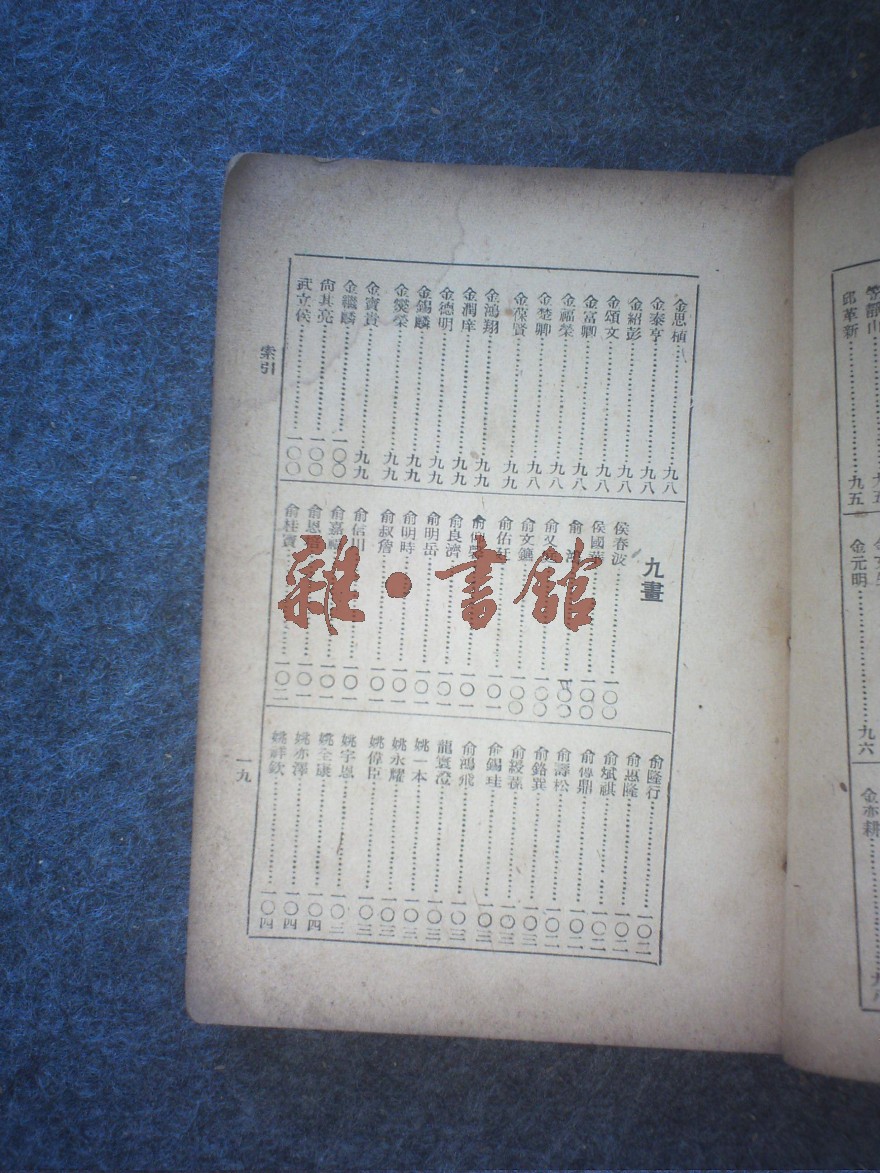 邱革新……九五
金元明……九六
金亦耕
金思楨……九八
金泰亨……九八
金紹彭……九八
金頌文……九八
金富卿……九八
金福榮……九八
金楚卿……九八
金葆賢……九九
金鴻翔……九九
金潤庠……九九
金德明……九九
金錫麟……九九
金奬榮……九九
金寶貴……九九
金繼麟……一〇〇
尙其亮……一〇〇
武立侯……一〇〇
九畫
侯春波……一〇〇
侯國華……一〇〇
俞……一〇〇
俞……一〇〇
俞文鑣……一〇〇
俞佑軒……一〇一
俞……一〇一
俞良濟……一〇一
俞明岳……一〇一
俞明時……一〇一
俞叔詹……一〇一
俞信川……一〇一
俞嘉……一〇一
俞恩……一〇一
俞桂賓……一〇二
俞隆行……一〇二
俞惠隆……一〇二
俞斌祺……一〇二
俞傳鼎……一〇二
俞壽松……一〇二
俞銘巽……一〇三
俞綬葆……一〇三
俞錫珪……一〇三
俞鴻飛……一〇三
龍寶澄……一〇三
姚一本……一〇三
姚永耀……一〇三
姚偉臣……一〇三
姚宇恩……一〇三
姚全康……一〇四
姚亦澤……一〇四
姚祥欽……一〇四
索引
一九
雜·書館